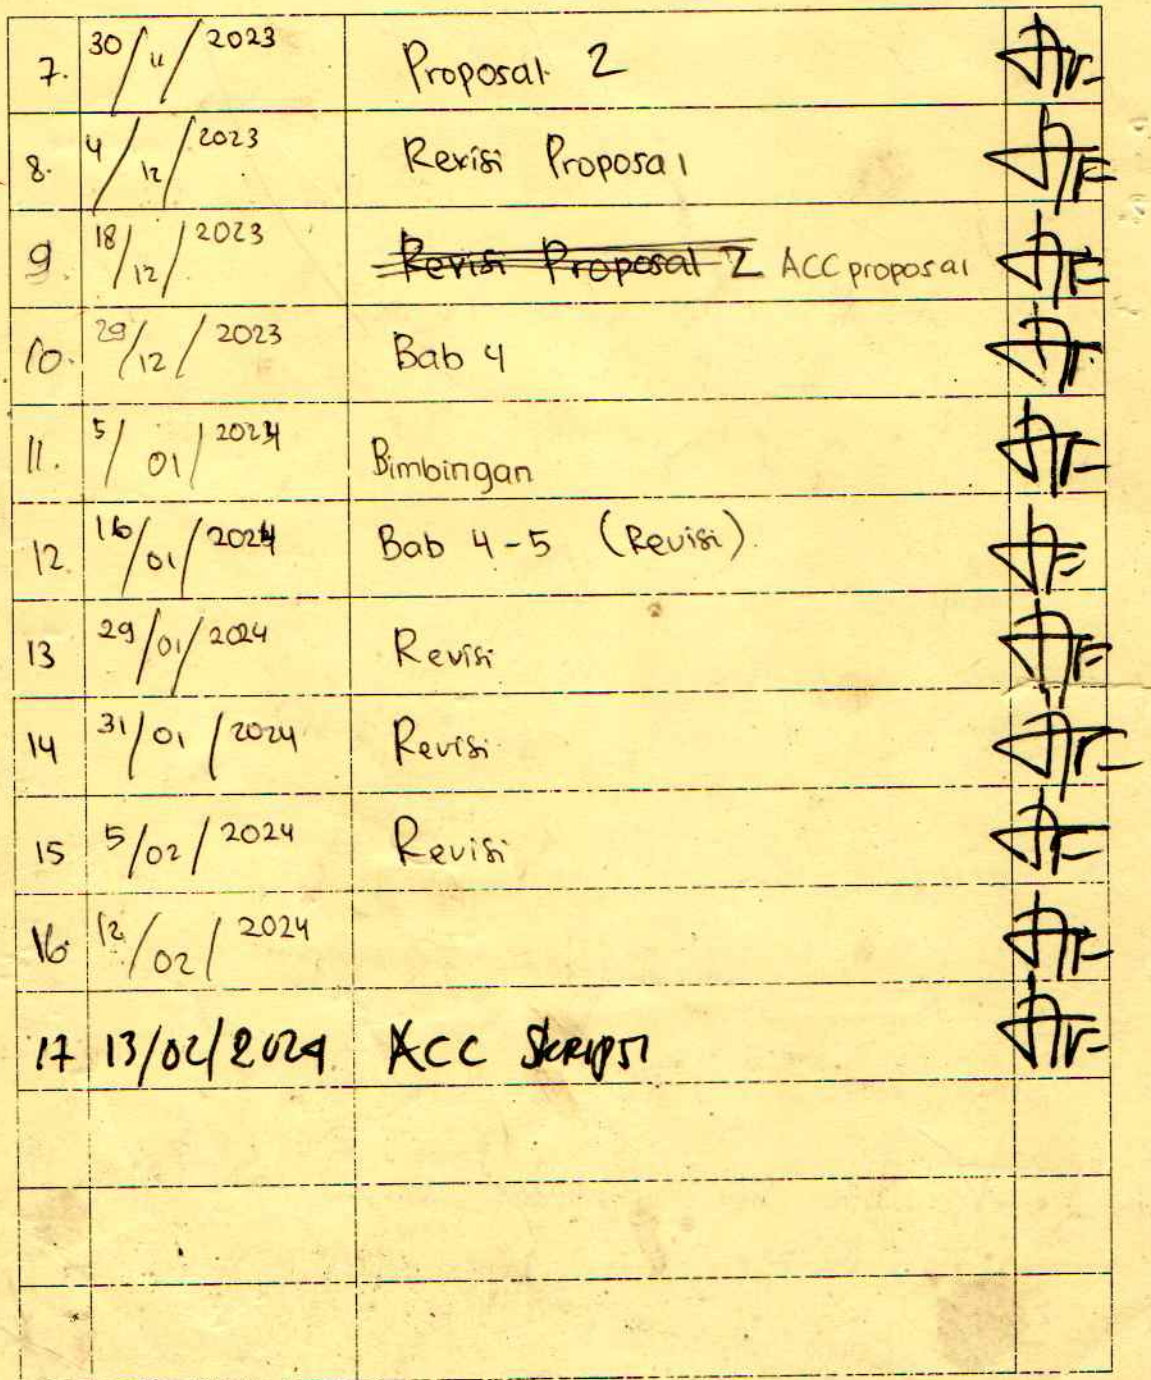 7. 30/11/2023 Proposal 2
8. 4/12/2023 Revisi Proposal
9. 18/12/2023 Revisi Proposal 2 ACC proposal
10. 29/12/2023 Bab 4
11. 5/01/2024 Bimbingan
12. 16/01/2024 Bab 4-5 (Revisi).
13 29/01/2024 Revisi
14 31/01/2024 Revisi
15 5/02/2024 Revisi
16. 12/02/2024
17 13/02/2024 ACC Skripsi